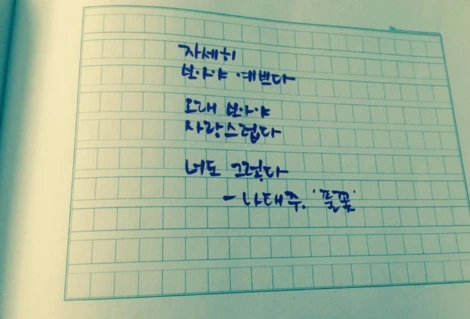 자세히
보아야 예쁘다
오래 보아야
사랑스럽다
너도 그렇다
- 나태주, '풀꽃'